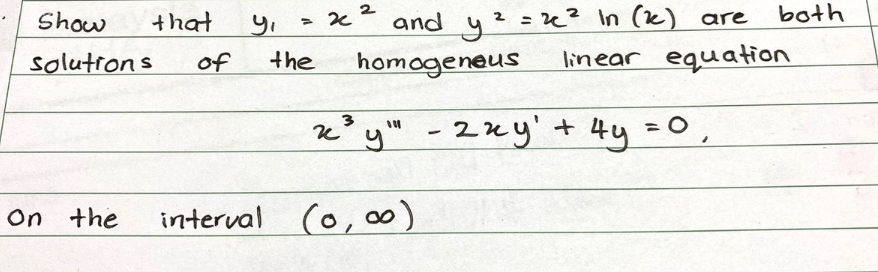 Show that y₁ = x² and y² = x² ln (x) are both
solutions of the homogeneus linear equation
x³ y''' - 2xy' + 4y = 0,
on the interval (0, ∞)